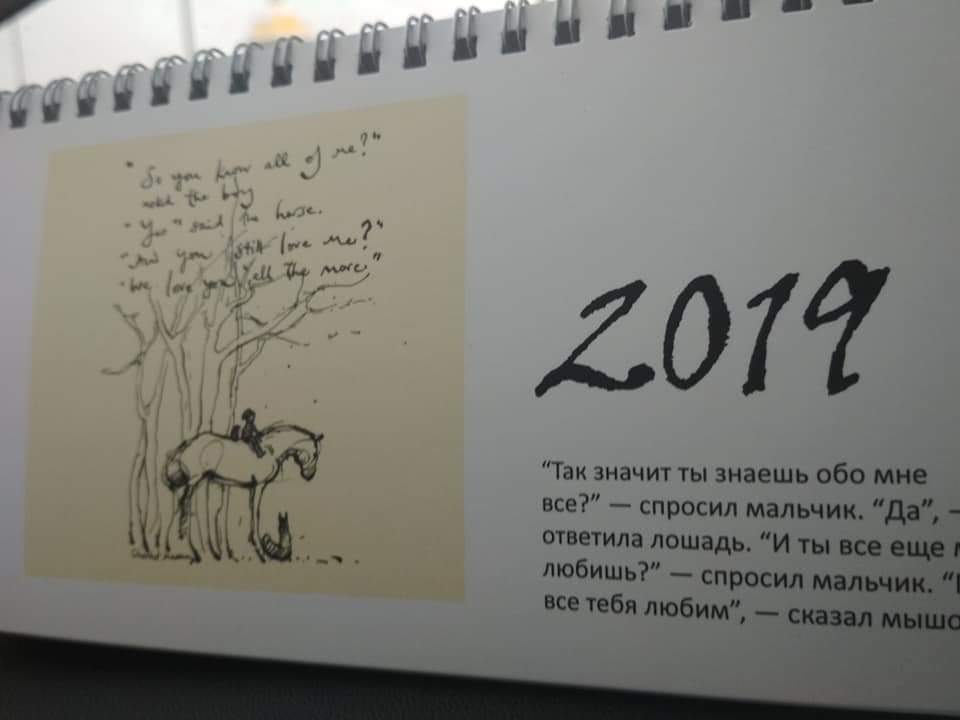 "So you know all of me?"
asked the boy
"Yes" said the horse.
"And you still love me?"
"We love you all the more."
2019
“Так значит ты знаешь обо мне
все?” — спросил мальчик. “Да”, —
ответила лошадь. “И ты все еще
любишь?” — спросил мальчик. “
все тебя любим”, — сказал